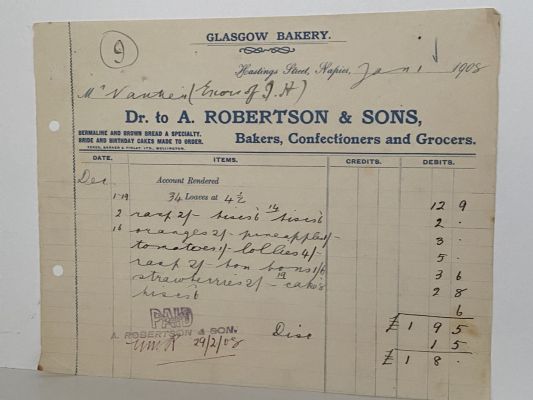 9
GLASGOW BAKERY.
Hastings Street, Napier, Jan 1 1908
Mr (Exors of J. H)
Dr. to A. ROBERTSON & SONS,
BERMALINE AND BROWN BREAD A SPECIALTY.
BRIDE AND BIRTHDAY CAKES MADE TO ORDER.
Bakers, Confectioners and Grocers.
DATE. ITEMS. CREDITS. DEBITS.
Dec Account Rendered
1-19 34 Loaves at 4½ 12 9
2 rasp 2/- biscs 6 14 biscs 6 2 .
16 oranges 2/- pineapple 1/- 3 .
tomatoes 1/- lollies 4/- 5 .
rasp 2/- bon bons 1/6 3 6
strawberries 2/- 19 cake 8 2 8
biscs 6 6
£ 1 9 5
PAID
A. ROBERTSON & SON. Disc 1 5
29/2/08 £ 1 8 .